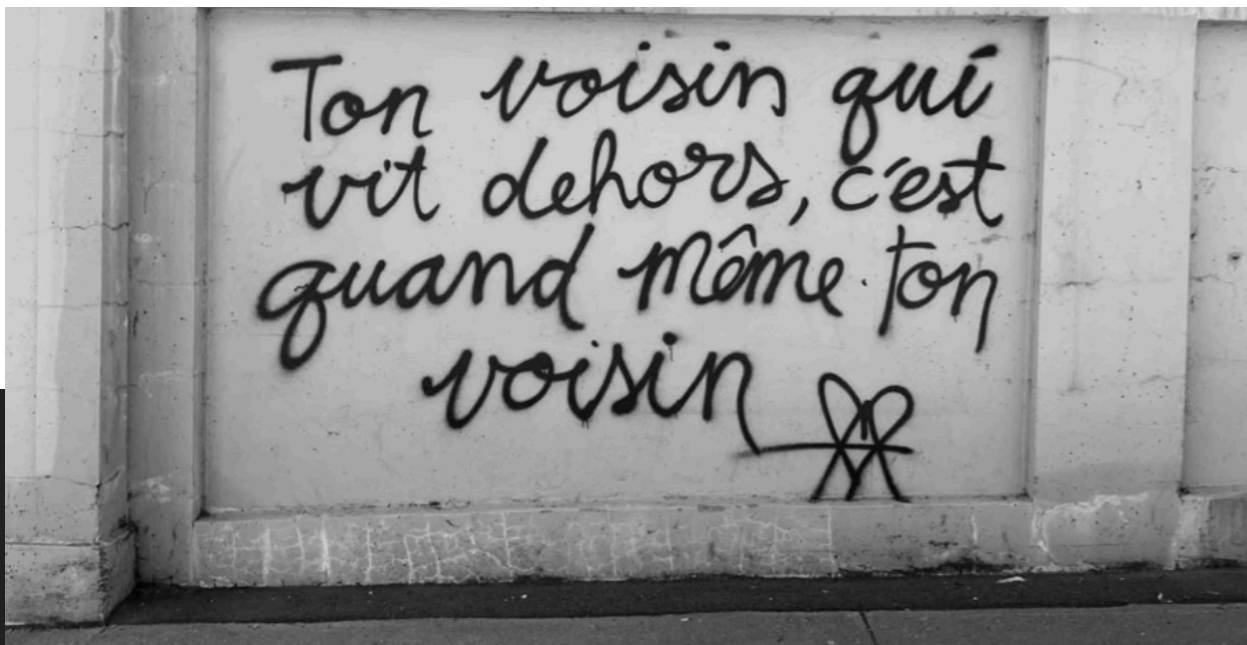 Ton voisin qui
vit dehors, c'est
quand même ton
voisin